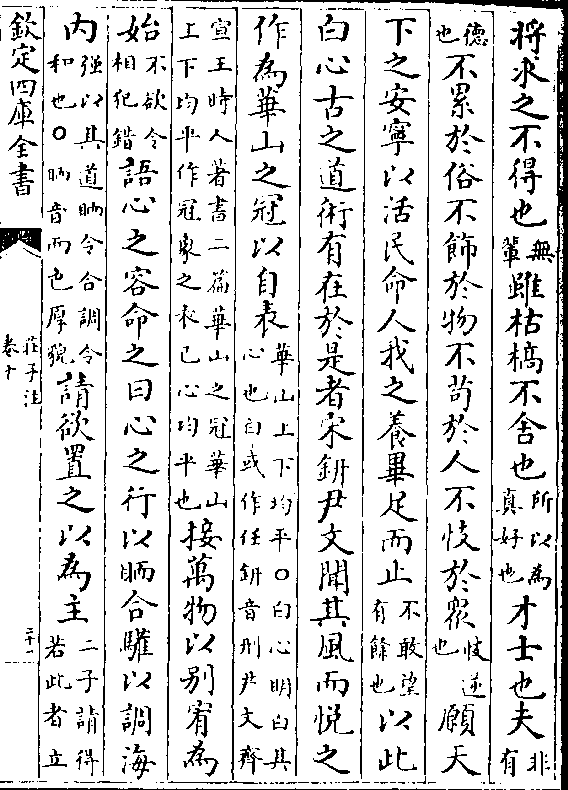 将求之不得也無輩雖枯槁不舍也所以為真好也才士也夫非有
徳也不累於俗不飾於物不苟於人不忮於衆忮逆也願天
下之安寧以活民命人我之養畢足而止不敢望有餘也以此
白心古之道術有在於是者宋鈃尹文聞其風而悦之
作為華山之冠以自表華山上下均平○白心明白其心也白或作任鈃音刑尹文齊
宣王時人著書二篇華山之冠華山上下均平作冠象之表己心均平也接萬物以别宥為
始不欲令相犯錯語心之容命之曰心之行以聏合驩以調海
内强以其道聏令合調令和也○聏音而色厚貌請欲置之以為主二子請得若此者立
欽定四庫全書
莊子注
卷十
二十一